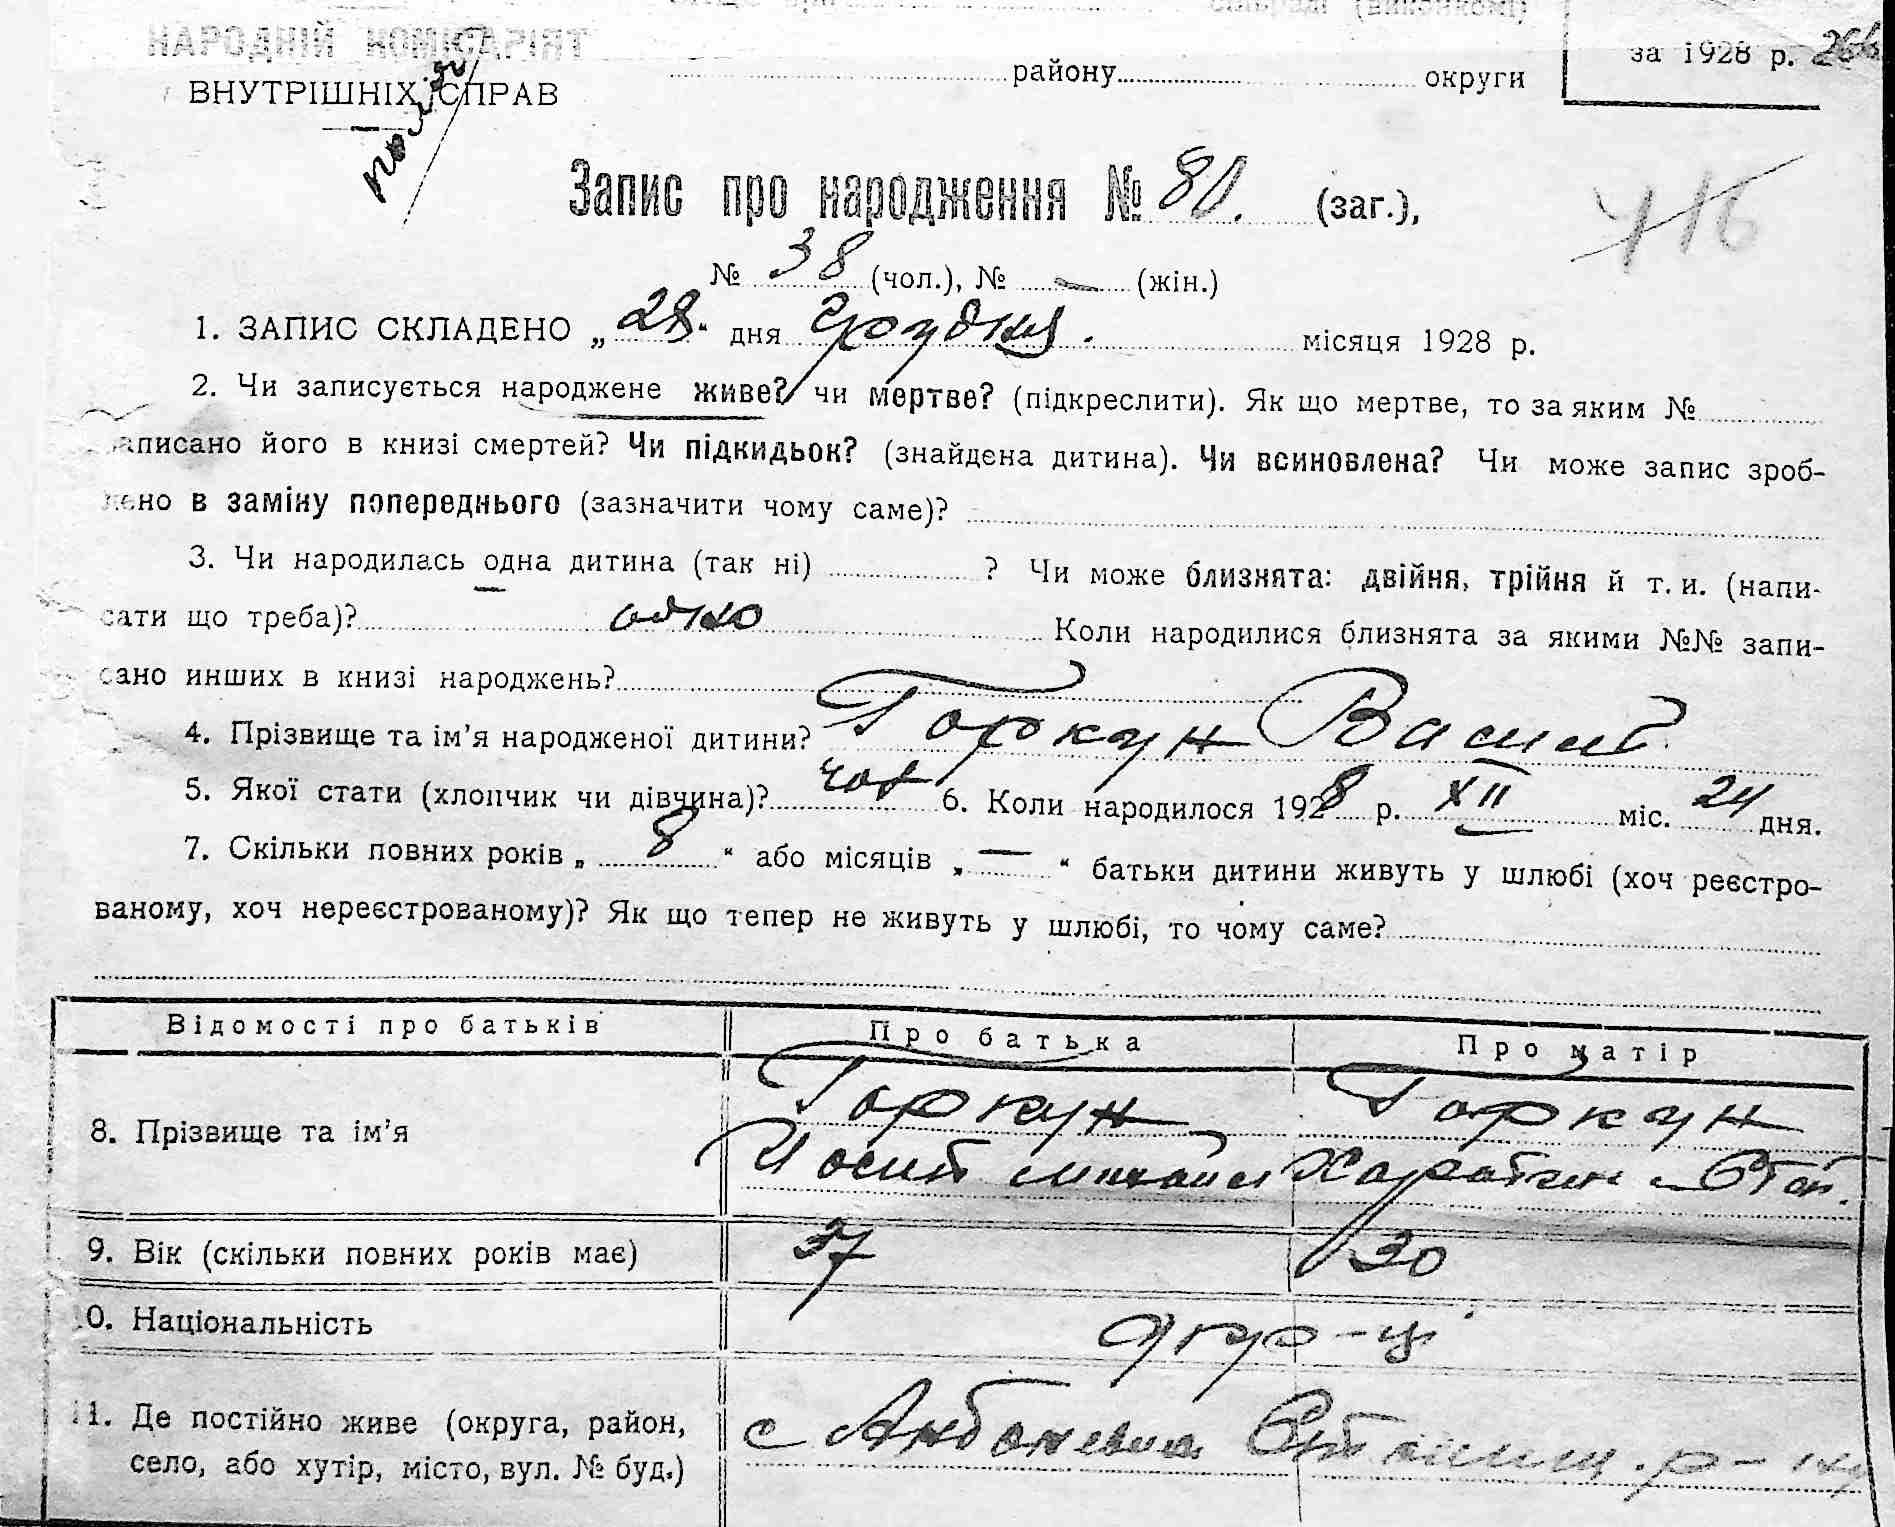 НАРОДНІЙ КОМІСАРІЯТ
ВНУТРІШНІХ СПРАВ
району округи
за 1928 р.
Запис про народження № 80. (заг.),
416
№ 38 (чол.), № — (жін.)
1. ЗАПИС СКЛАДЕНО „28“ дня Грудня. місяця 1928 р.
2. Чи записується народжене живе? чи мертве? (підкреслити). Як що мертве, то за яким №
записано його в книзі смертей? Чи підкидьок? (знайдена дитина). Чи всиновлена? Чи може запис зроб-
лено в заміну попереднього (зазначити чому саме)?
3. Чи народилась одна дитина (так ні) ? Чи може близнята: двійня, трійня й т. и. (напи-
сати що треба)? одно Коли народилися близнята за якими №№ запи-
сано инших в книзі народжень?
4. Прізвище та ім’я народженої дитини? Горкун Васил
5. Якої стати (хлопчик чи дівчина)? чол 6. Коли народилося 1928 р. XII міс. 24 дня.
7. Скільки повних років „ 8 “ або місяців „ — “ батьки дитини живуть у шлюбі (хоч реєстро-
ваному, хоч нереєстрованому)? Як що тепер не живуть у шлюбі, то чому саме?
Відомості про батьків Про батька Про матір
8. Прізвище та ім’я Горкун Горкун
Йосип Михайл Харатина Степ.
9. Вік (скільки повних років має) 37 30
10. Національність укр-ці
11. Де постійно живе (округа, район,
село, або хутір, місто, вул. № буд.)
с р-ну